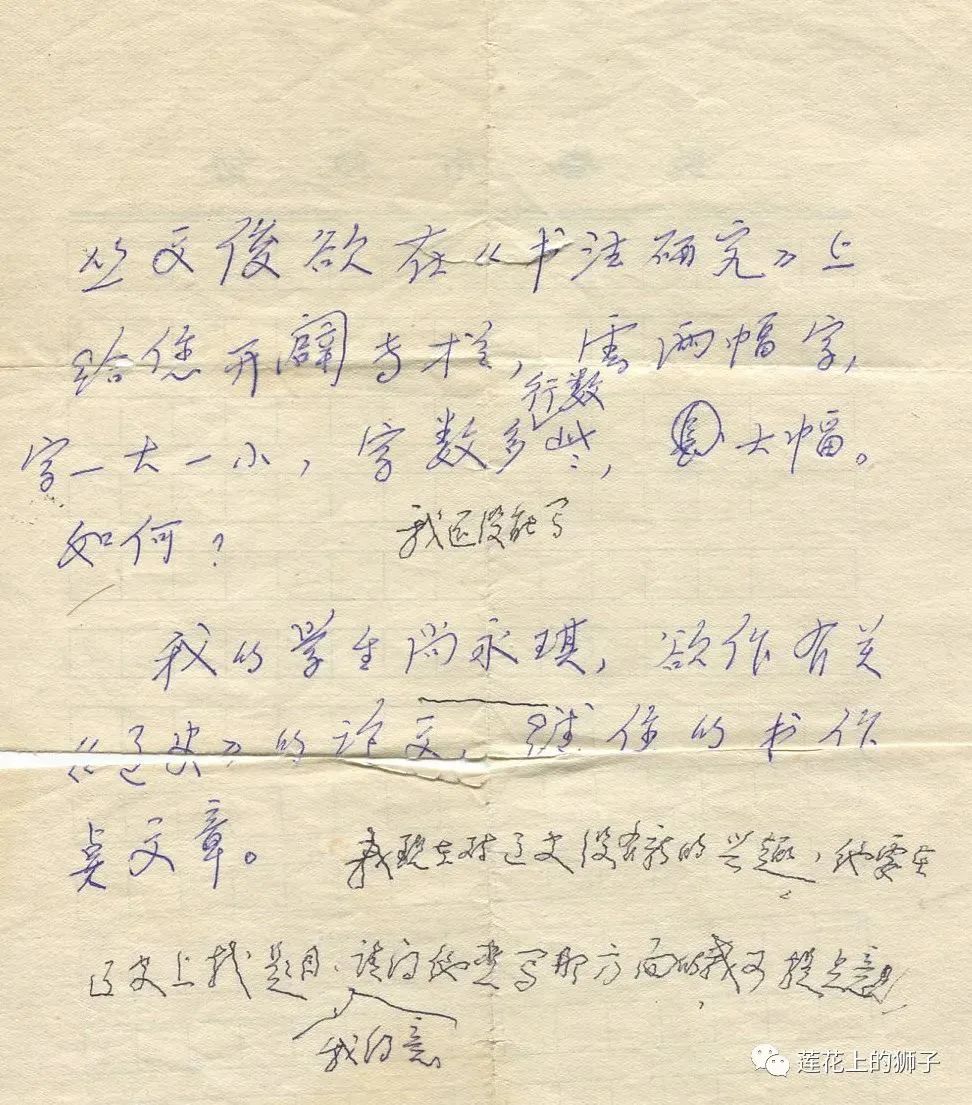 此文后欲在《书法研究》上
给您开辟专栏，需两幅字，
行数
字一大一小，字数多些，大幅。
如何？
我还没能写
我的学生尚永琪，欲作有关
《辽史》的论文，就你的书作
点文章。
我现在对辽史没有新的兴趣，他要在
辽史上找题目，请问他要写那方面的我可提点意见
我的意
莲花上的狮子